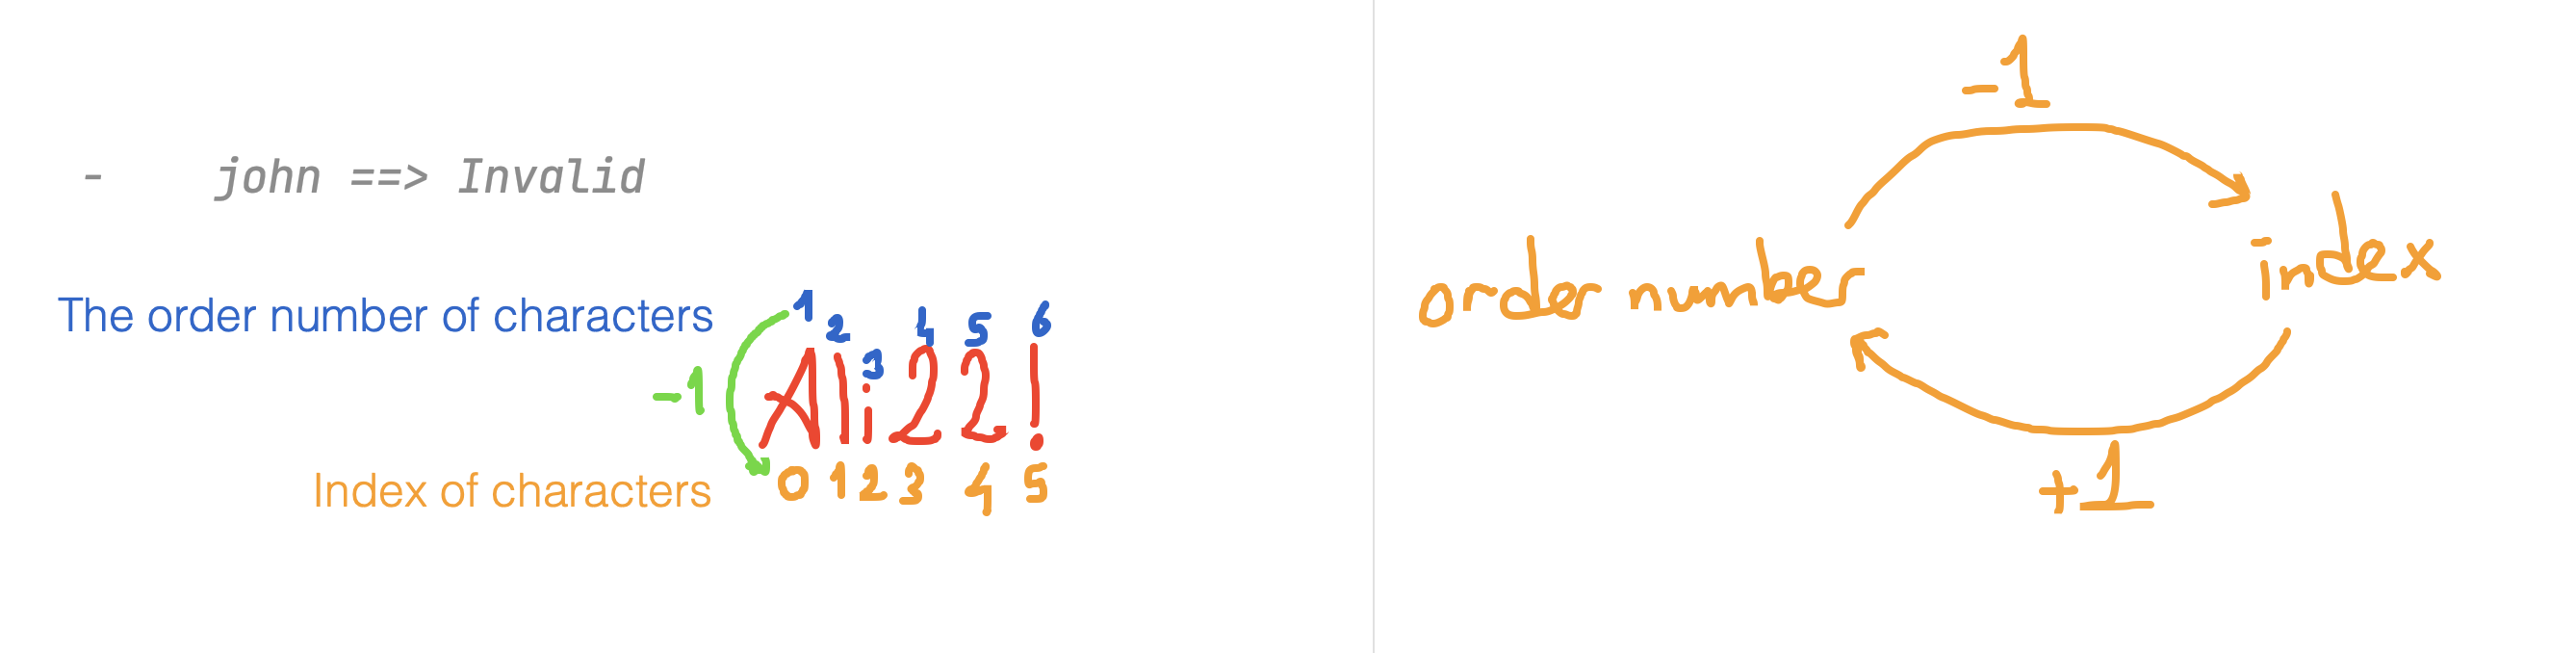 - john ==> Invalid
The order number of characters
1 2 3 4 5 6
-1
Ali22!
Index of characters
0 1 2 3 4 5
-1
order number
index
+1